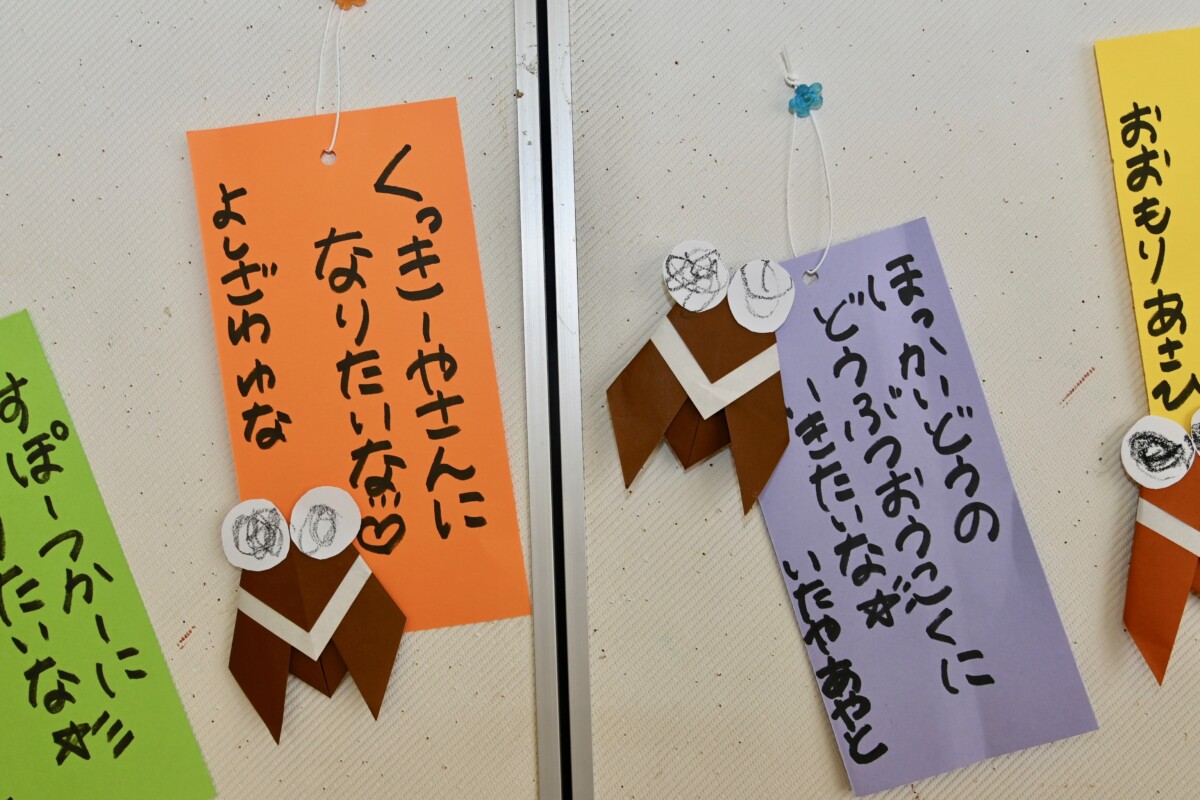 おおもりあさひ
ほっかいどうの
どうぶつおうこくに
いきたいな☆
いたやあやと
くっきーやさんに
なりたいな♡
よしざわ ゆな
すぽーつかーに
たいな☆